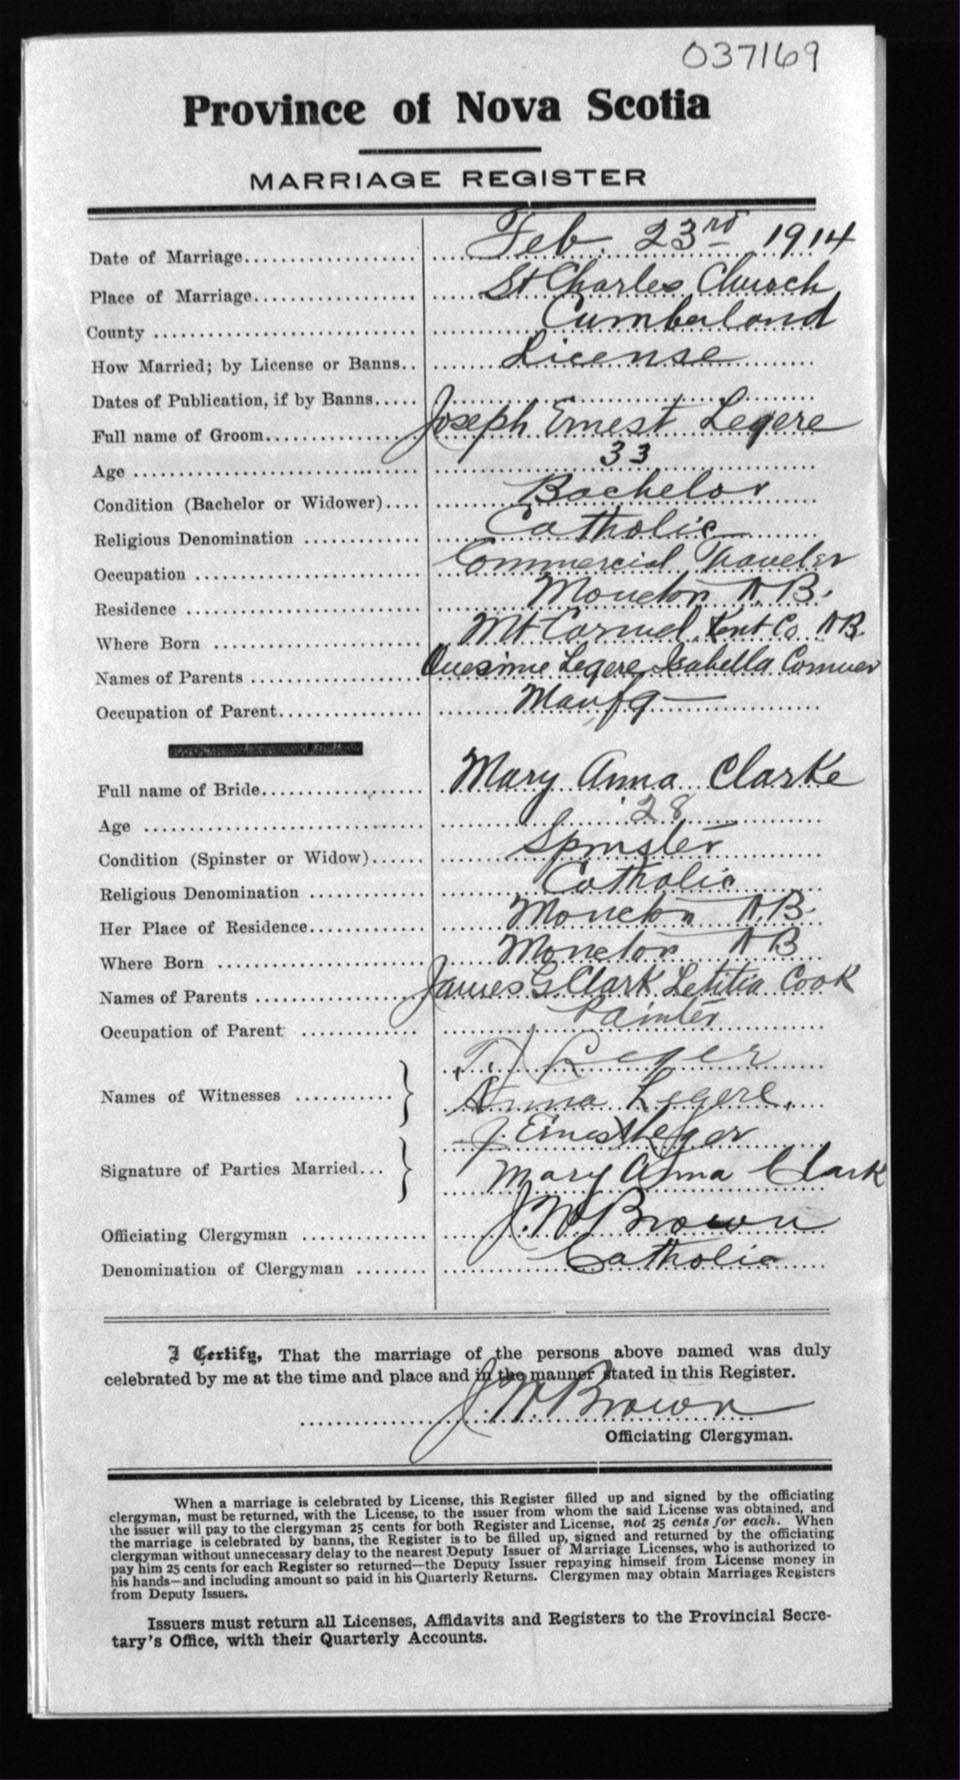 037169
Province of Nova Scotia
MARRIAGE REGISTER
Date of Marriage.................... Feb. 23rd 1914
Place of Marriage................... St Charles Church
County .............................. Cumberland
How Married; by License or Banns.. License
Dates of Publication, if by Banns.....
Full name of Groom.................. Joseph Ernest Legere
Age .................................. 33
Condition (Bachelor or Widower).... Bachelor
Religious Denomination ............. Catholic
Occupation ......................... Commercial Traveler
Residence .......................... Moncton N.B.
Where Born ......................... Mt Carmel, Kent Co NB
Names of Parents ................... Onesime Legere Isabella
Occupation of Parent................ Manfg
Full name of Bride.................. Mary Anna Clarke
Age .................................. 28
Condition (Spinster or Widow)...... Spinster
Religious Denomination ............. Catholic
Her Place of Residence.............. Moncton N.B.
Where Born ......................... Moncton NB
Names of Parents ................... James G. Clark Letitia Cook
Occupation of Parent ............... Painter
T. J. Leger
Names of Witnesses ........... Anna Legere.
J. Ernest Leger
Signature of Parties Married... Mary Anna Clark
Officiating Clergyman ............... J. W. Brown
Denomination of Clergyman ........ Catholic
I Certify, That the marriage of the persons above named was duly
celebrated by me at the time and place and in the manner stated in this Register.
J. W. Brown
Officiating Clergyman.
When a marriage is celebrated by License, this Register filled up and signed by the officiating
clergyman, must be returned, with the License, to the issuer from whom the said License was obtained, and
the issuer will pay to the clergyman 25 cents for both Register and License, not 25 cents for each. When
the marriage is celebrated by banns, the Register is to be filled up, signed and returned by the officiating
clergyman without unnecessary delay to the nearest Deputy Issuer of Marriage Licenses, who is authorized to
pay him 25 cents for each Register so returned—the Deputy Issuer repaying himself from License money in
his hands—and including amount so paid in his Quarterly Returns. Clergymen may obtain Marriages Registers
from Deputy Issuers.
Issuers must return all Licenses, Affidavits and Registers to the Provincial Secre-
tary's Office, with their Quarterly Accounts.